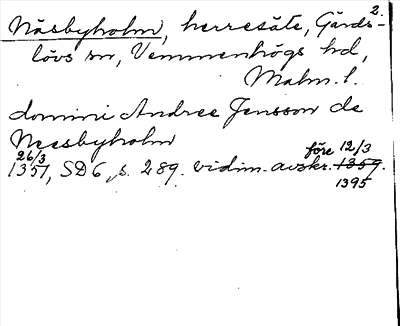 2.
Näsbyholm, herresäte, Gärds-
lövs sn, Vemmenhögs hd,
Malm. l.
domini Andree Jensson de
Neesbyholm
26/3 före 12/3
1357, SD 6, s. 289. vidim. avskr. 1359.
1395